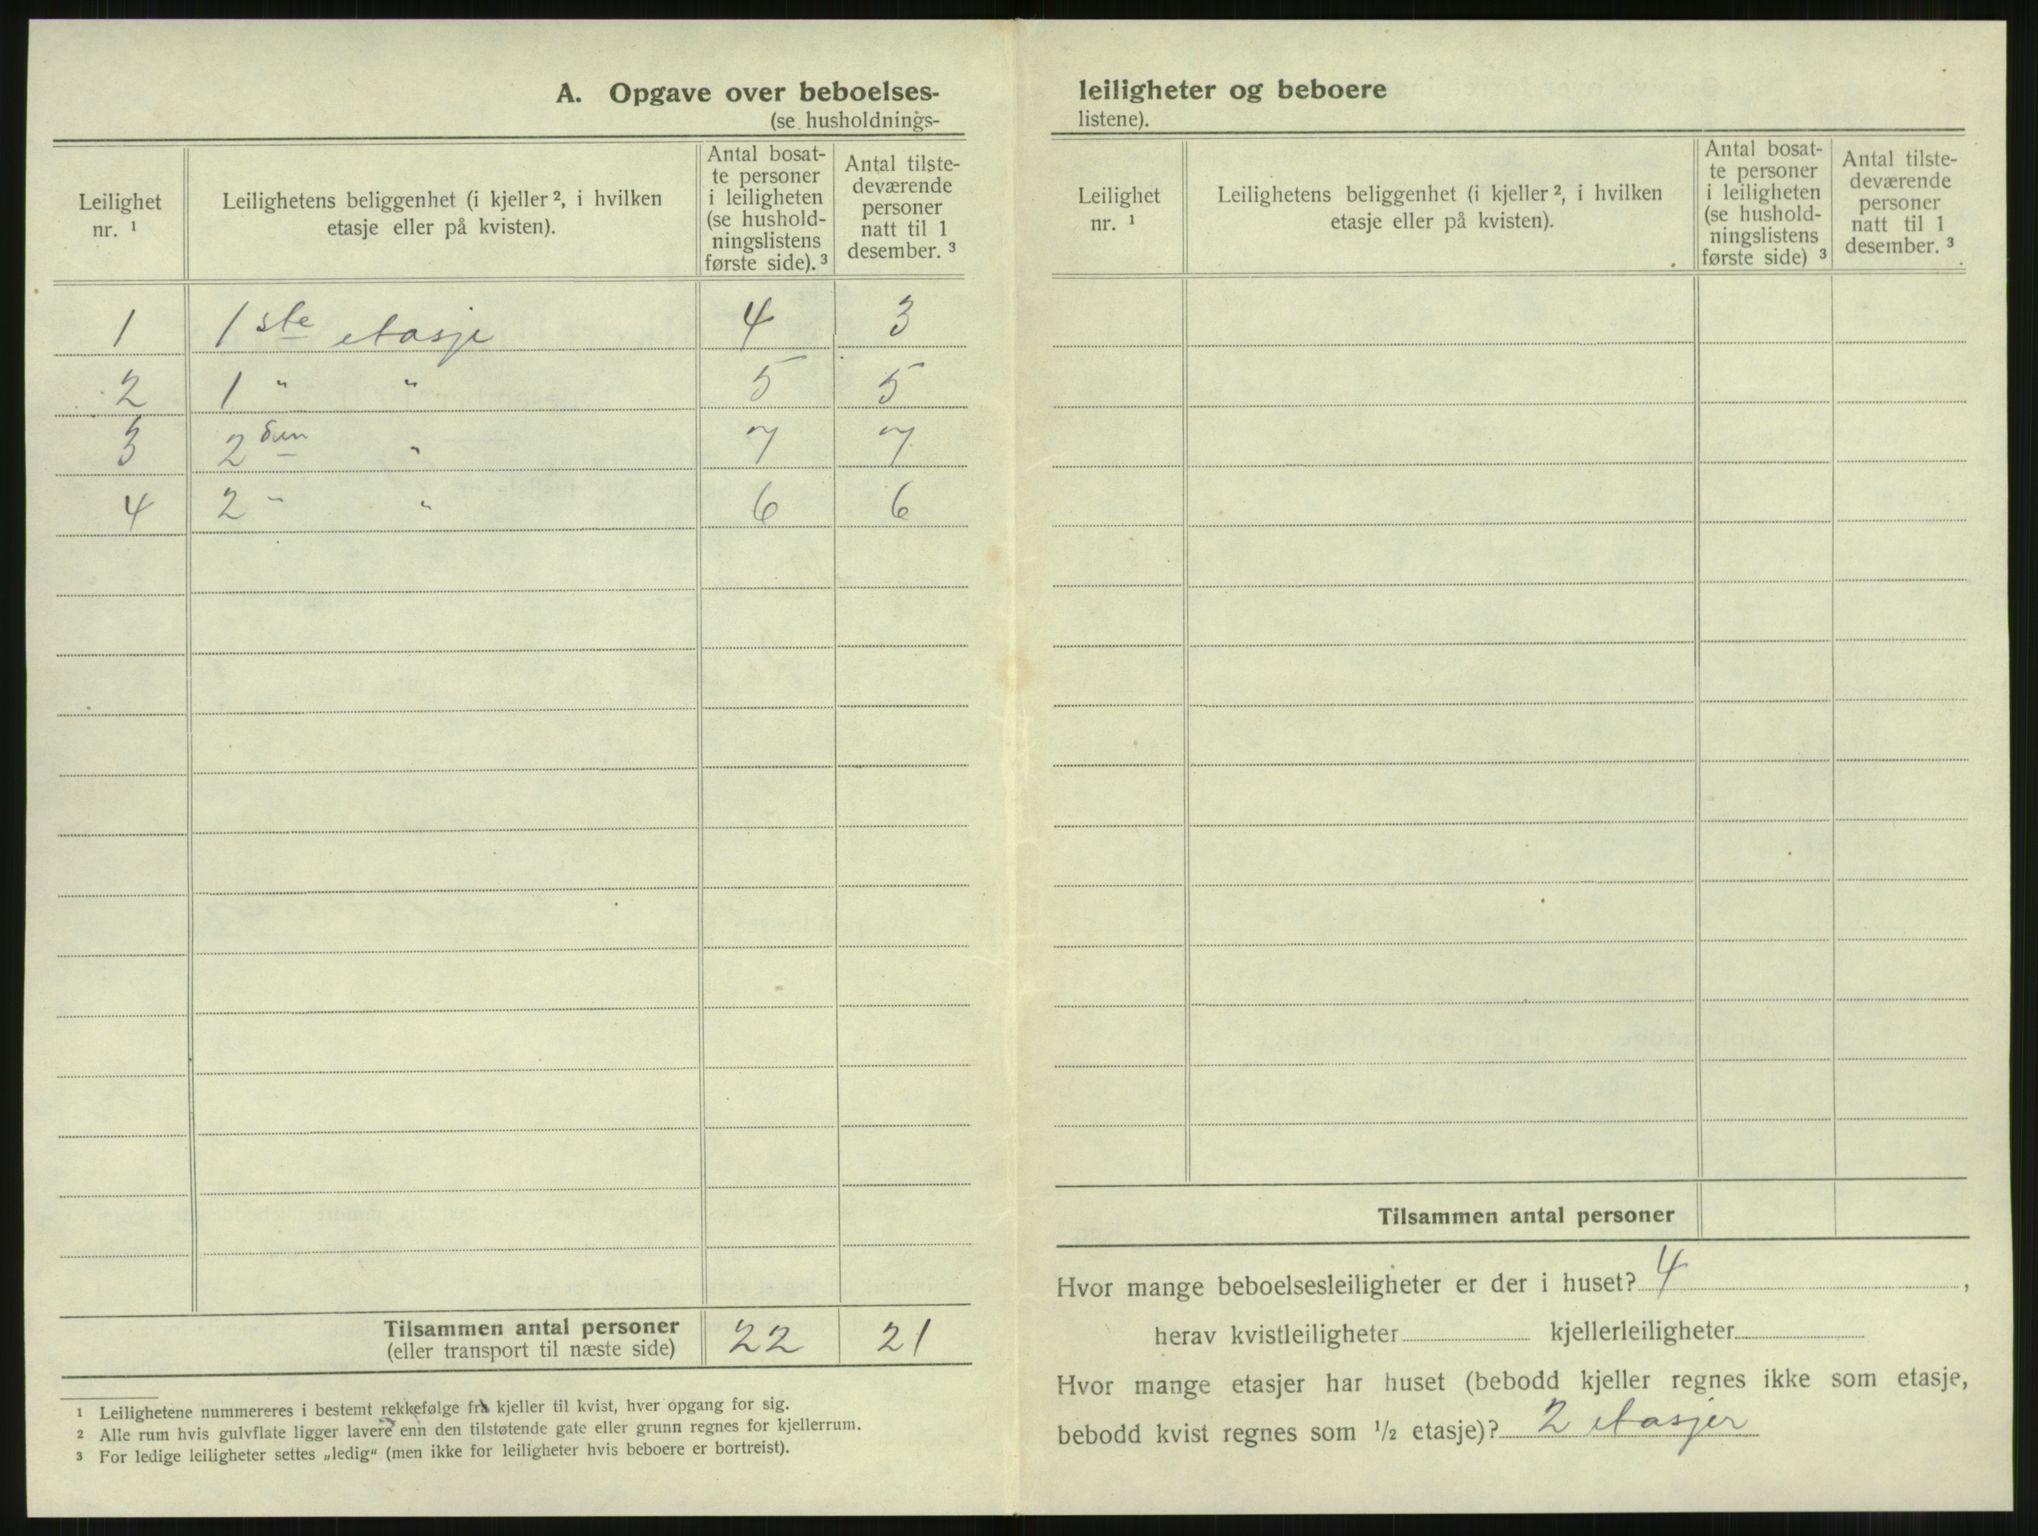 A. Opgave over beboelses-
(se husholdnings-
Leilighet nr. ¹
Leilighetens beliggenhet (i kjeller ², i hvilken etasje eller på kvisten).
Antal bosat-
te personer
i leiligheten
(se hushold-
ningslistens
første side). ³
Antal tilste-
deværende
personer
natt til 1
desember. ³
1 1ste etasje 4 3
2 1 " " 5 5
3 2den " 7 7
4 2 " " 6 6
Tilsammen antal personer
(eller transport til næste side) 22 21
¹ Leilighetene nummereres i bestemt rekkefølge fra kjeller til kvist, hver opgang for sig.
² Alle rum hvis gulvflate ligger lavere enn den tilstøtende gate eller grunn regnes for kjellerrum.
³ For ledige leiligheter settes „ledig" (men ikke for leiligheter hvis beboere er bortreist).
leiligheter og beboere
listene).
Leilighet nr. ¹
Leilighetens beliggenhet (i kjeller ², i hvilken etasje eller på kvisten).
Antal bosat-
te personer
i leiligheten
(se hushold-
ningslistens
første side) ³
Antal tilste-
deværende
personer
natt til 1
desember. ³
Tilsammen antal personer
Hvor mange beboelsesleiligheter er der i huset? 4,
herav kvistleiligheter kjellerleiligheter
Hvor mange etasjer har huset (bebodd kjeller regnes ikke som etasje,
bebodd kvist regnes som ½ etasje)? 2 etasjer